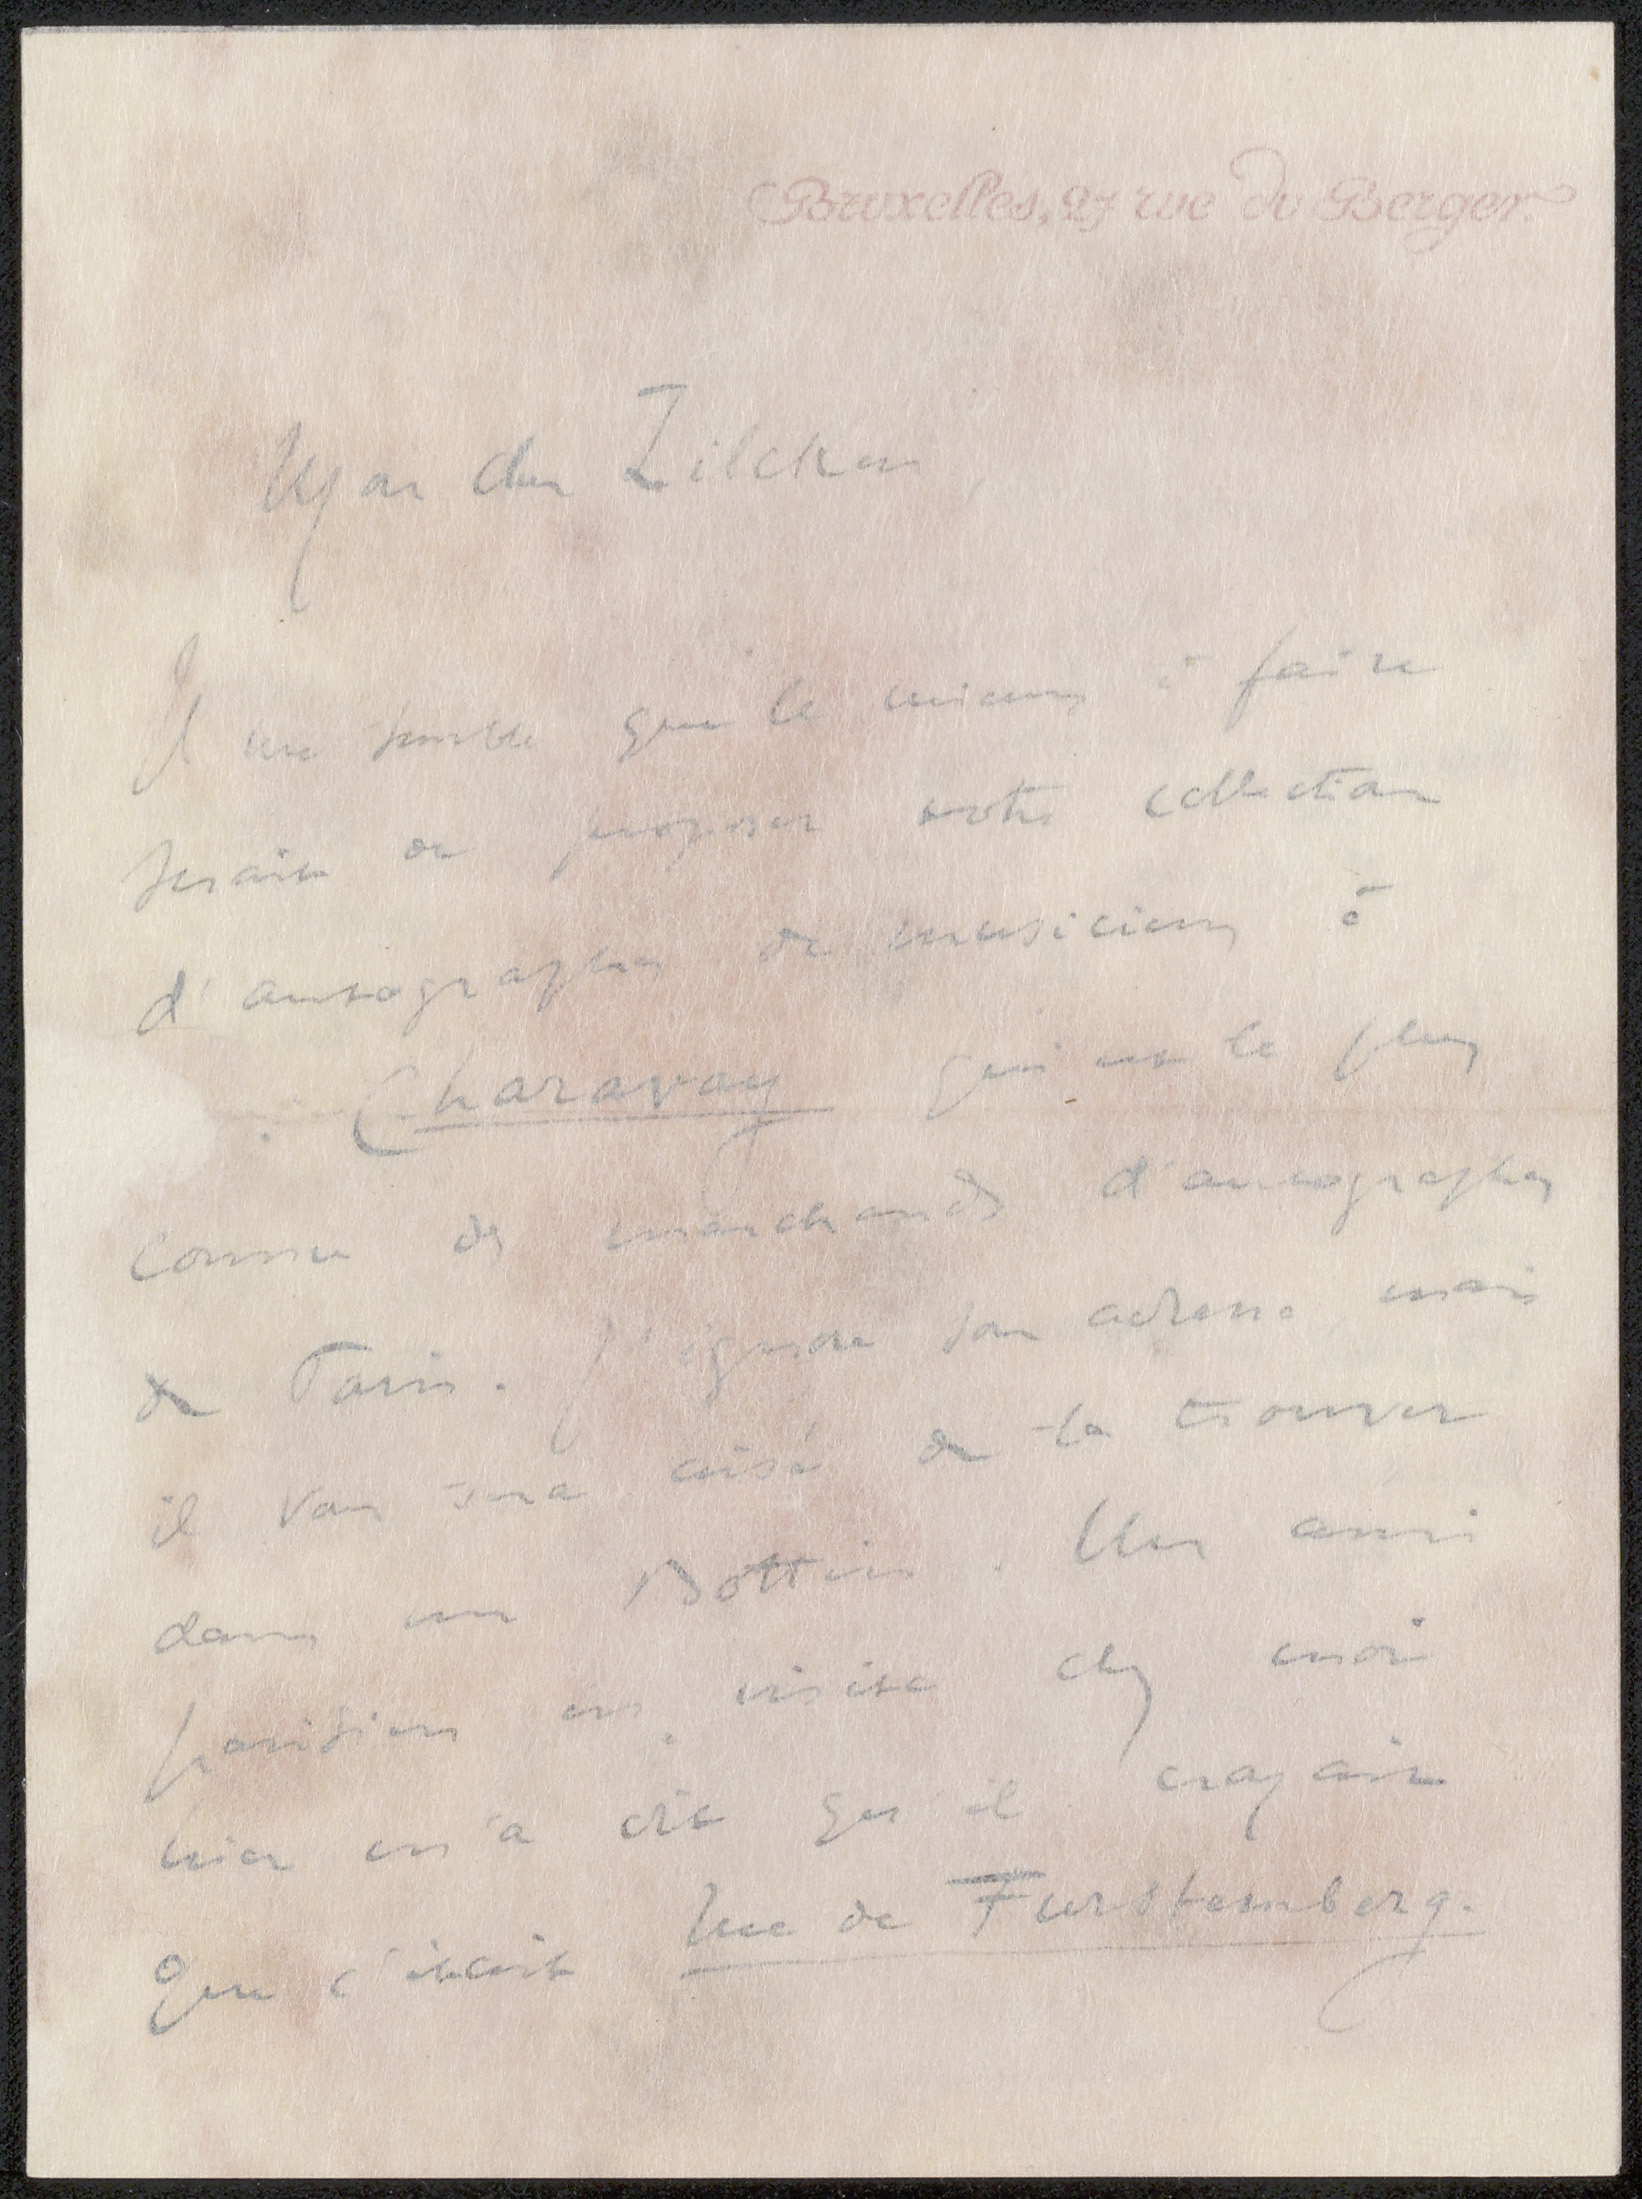 Bruxelles, 27 rue du Berger.
Mon cher Zilcken,
Il me semble que le mieux à faire
serait de proposer votre collection
d'autographes de musiciens à
Charavay qui est le plus
connu des marchands d'autographes
de Paris. J'ignore son adresse, mais
il vous sera aisé de la trouver
dans un Bottin. Un ami
parisien en visite chez moi
hier m'a dit qu'il croyait
que c'était Rue de Furstemberg.